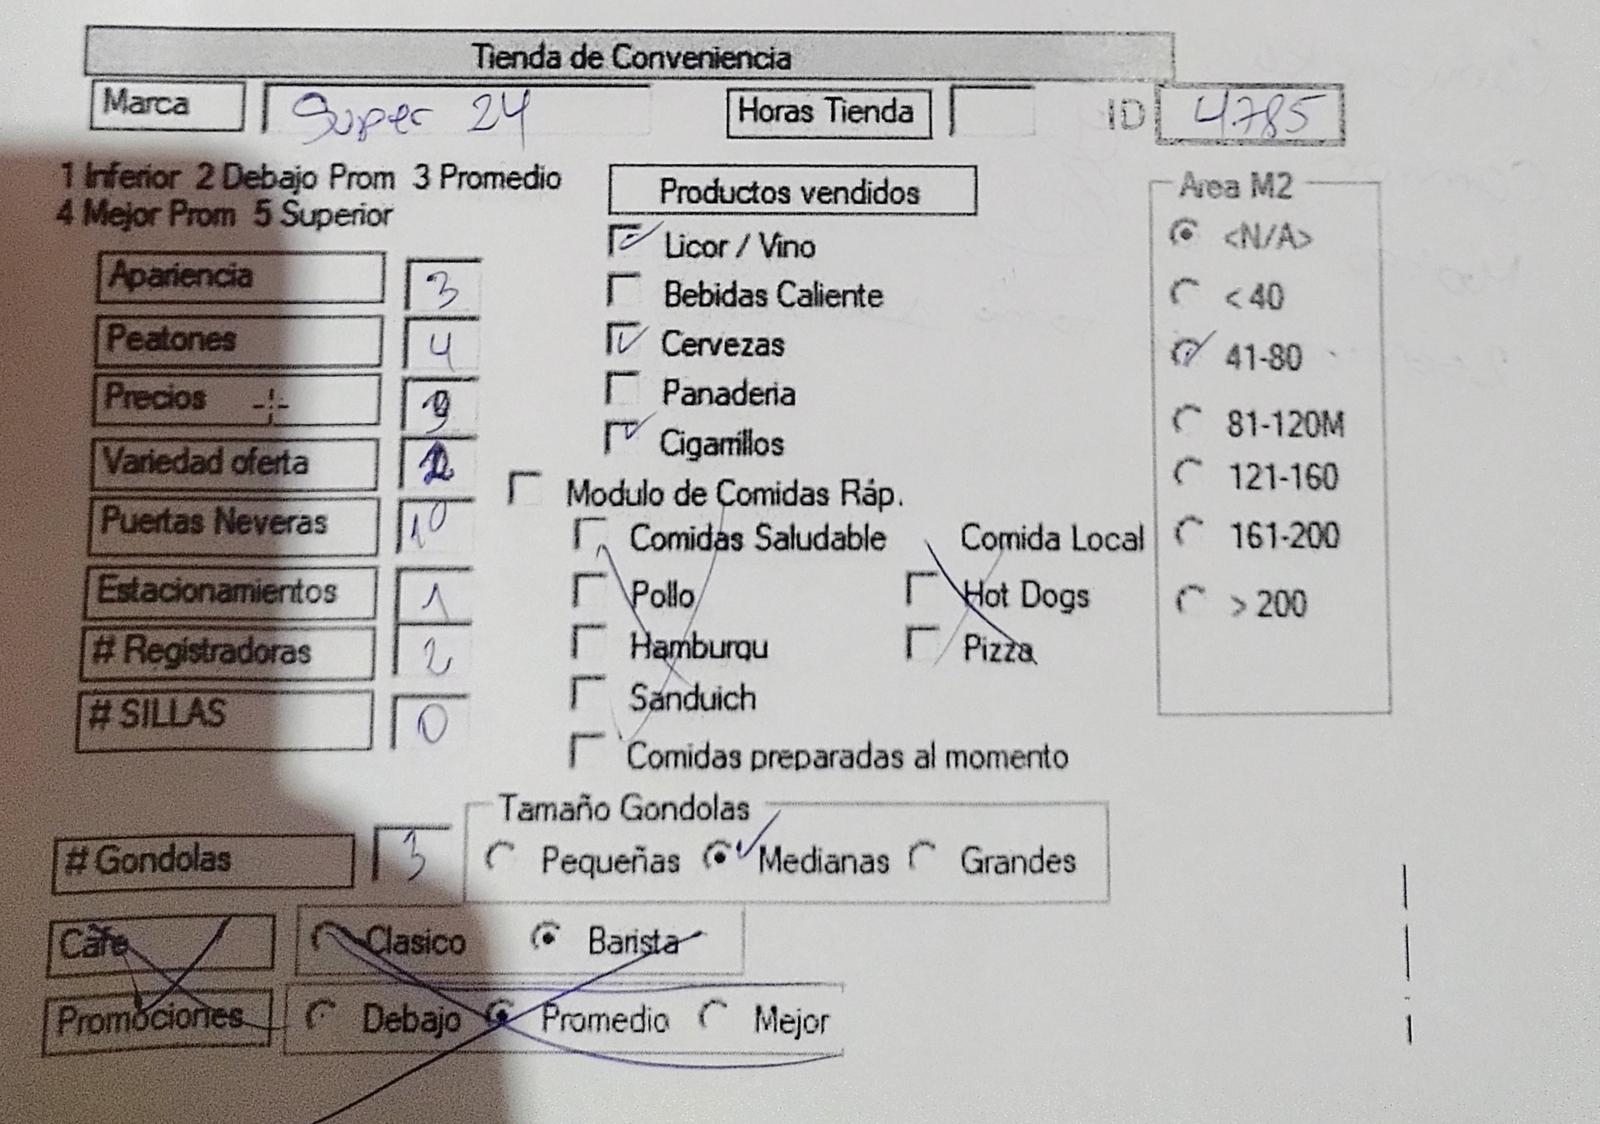 Tienda de Conveniencia
Marca Super 24 Horas Tienda ID 4785
1 Inferior 2 Debajo Prom 3 Promedio
4 Mejor Prom 5 Superior
Productos vendidos
Area M2
Licor / Vino
<N/A>
Apariencia 3
Bebidas Caliente
< 40
Peatones 4
Cervezas
41-80
Precios
Panaderia
81-120M
Variedad oferta
Cigarrillos
121-160
Modulo de Comidas Ráp.
Puertas Neveras 10
Comidas Saludable Comida Local
161-200
Estacionamientos 1
Pollo Hot Dogs
> 200
# Registradoras 2
Hamburqu Pizza
# SILLAS 0
Sanduich
Comidas preparadas al momento
Tamaño Gondolas
# Gondolas 3 Pequeñas Medianas Grandes
Cafe Clasico Barista
Promociones Debajo Promedio Mejor